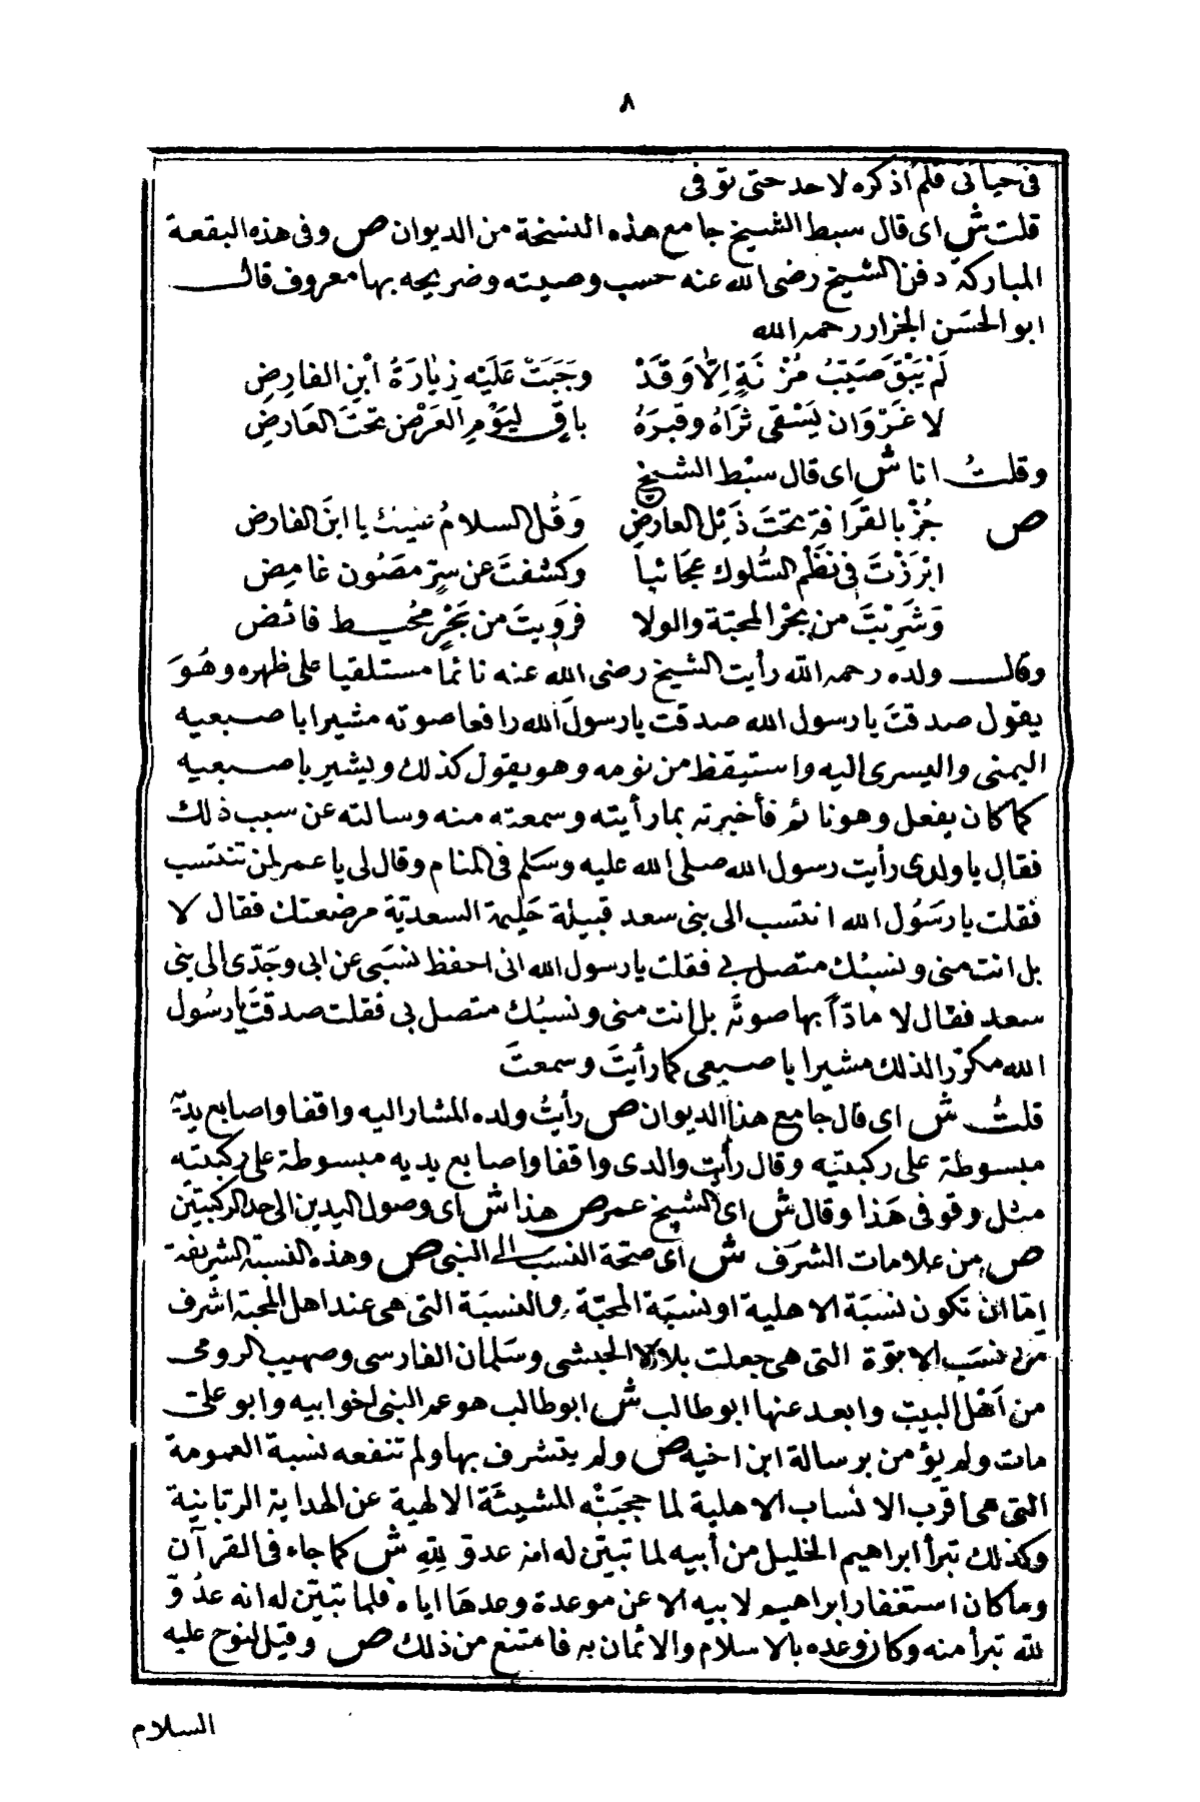 ٨
فى حياتى فلم اذكره لاحد حتى توفى
قلت ش اى قال سبط الشيخ جامع هذه النسخة من الديوان ص وفى هذه البقعة
المباركة دفن الشيخ رضى الله عنه حسب وصيته وضريحه بها معروف قال
ابو الحسَن الجزار رحمه الله
لَمْ يَبْقَ صَيّبُ مُزْنَةٍ اِلَّا وَقَدْ وجَبَتْ عَلَيْه زِيَارَةُ ابْنِ الفارِضِ
لا غَرْوَ ان يَسْقى ثَرَاهُ وقبرَهُ باقٍ ليَوْمِ العَرْض تحْتَ العَارِضِ
وقلتُ انا ش اى قال سبْط الشيخ
ص جُزْ بالقَرَافةِ تحْتَ ذَيْل العارِضِ وَقُل السلامُ عليك يا ابنَ الفارض
ابْرَزْتَ فى نَظْم السُّلوك عجَائباً وكشفتَ عن سرٍّ مصَون غامِض
وَشَرِبْتَ من بحْر المحبّة والولا فرَوِيتَ من بَحْرٍ محُيط فائض
وقال ولده رحمه الله رأيت الشيخ رضى الله عنه نائماً مستلقيا على ظهره وهُوَ
يقول صدقتَ يا رسول الله صدقت يا رسولَ الله رافعا صوته مشيرا باصبعيه
اليمنى واليسرى اليه واستيقظ من نومه وهو يقول كذلك ويشير باصبعيه
كما كان يفعل وهو نائم فأخبرته بما رأيته وسمعته منه وسالته عن سبب ذلك
فقال يا ولدى رأيت رسول الله صلى الله عليه وسَلم فى المنام وقال لى يا عمر لمن تنتسب
فقلت يا رسَوُل الله انتسب الى بنى سعد قبيلة حَليمة السعديّة مرضعتك فقال لا
بل انت منى ونسبُك متصل بى فقلت يا رسول الله انى احفظ نسَبى عن ابى وجَدّى الى بنى
سعد فقال لا مادّاً بها صوتَه بل انت منى ونسبُك متصل بى فقلت صدقتَ يا رسُول
الله مكرّرا لذلك مشيرا باصبعى كما رأيتَ وسمعتَ
قلتُ ش اى قال جامع هذا الديوان ص رأيتُ ولده المشار اليه واقفا واصابع يديْه
مبسوطة على ركبتيْه وقال رأيت والدى واقفا واصابع يديه مبسوطة على ركبتيْه
مثل وقوفى هَذا وقال ش اى الشيخ عمر ص هذا ش اى وصول اليدين الى حد الركبتيَن
ص من علامات الشرَف ش اى صحّة النسَب الى النبى ص وهذه النسبة الشريفة
امّا ان تكون نسبَة الاهلية او نسبَة المحبّة والنسبَة التى هى عند اهل المحبة اشرف
من نسَب الابوّة التى هى جعلت بلالا الحبشى وسَلمان الفارسى وصهيب الرومى
من اَهْل البيت وابعد عنها ابو طالب ش ابو طالب هو عم النبى اخو ابيه وابو على
مات ولم يؤمن برسالة ابن اخيه ص ولم يتشرف بها ولم تنفعه نسبة العمومة
التى هى اقرب الانساب الاهلية لما حجبَتْه المشيئَة الالهية عن الهداية الربّانية
وكذلك تبرأ ابراهيم الخليل من أبيه لما تبيّن له انه عدوّ للهِ ش كما جاء فى القرآن
وما كان استغفار ابراهيم لابيه الا عن موعدة وعدهَا اياه فلما تبيّن له انه عدُوّ
لله تبرأ منه وكان وعده بالاسلام والائمان به فامتنع من ذلك ص وقيَل لنوح عليه
السلام